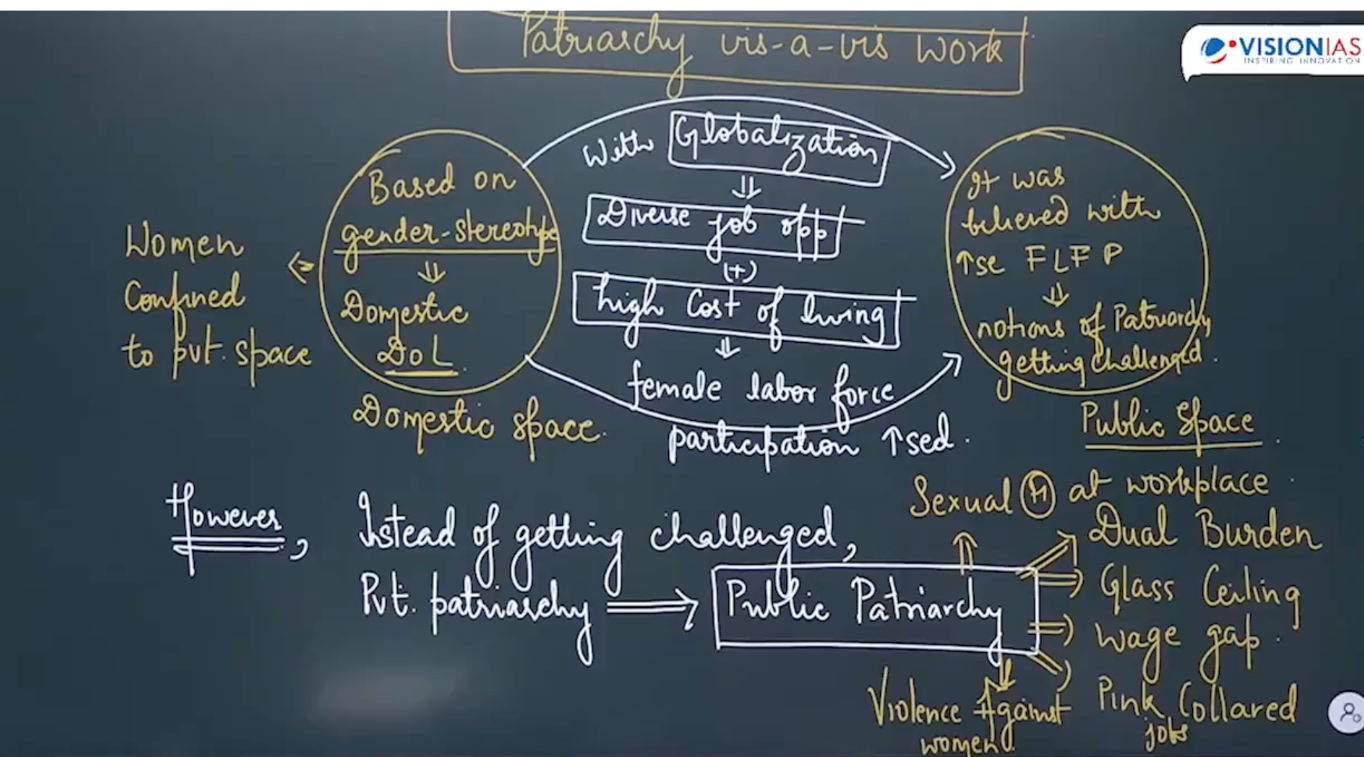 Patriarchy vis-a-vis work
VISIONIAS
INSPIRING INNOVATION
Women
Confined
to pvt. space
Based on
gender-stereotype
⇓
Domestic
DoL
Domestic space.
With Globalization
⇓
Diverse job opp
(+)
high Cost of living
⇓
female labor force
participation ↑sed.
It was
believed with
↑se FLFP
⇓
notions of Patriarchy
getting challenged.
Public Space
However,
Istead of getting challenged,
Pvt. patriarchy ⟹ Public Patriarchy
Sexual Ⓗ at workplace.
Dual Burden
Glass Ceiling
wage gap.
Pink Collared
jobs
Violence Against
women.